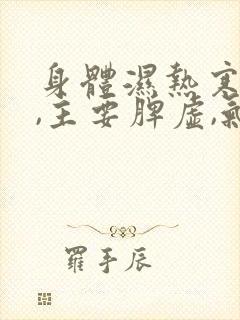 身體濕熱寒
,主要脾虛,氣
羅手辰